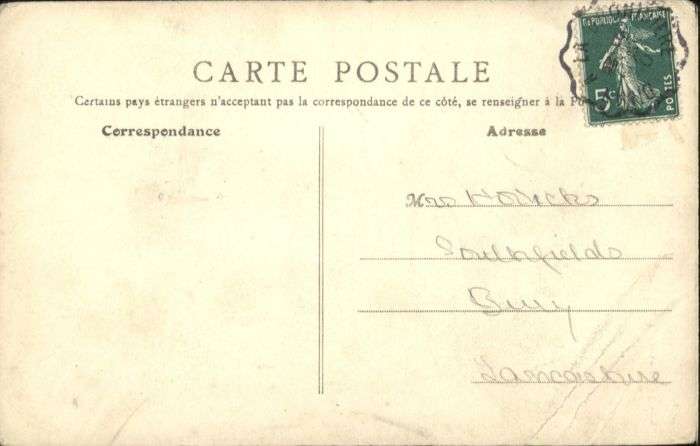 REPUBLIQUE FRANÇAISE
5c
POSTES
CARTE POSTALE
Certains pays étrangers n'acceptent pas la correspondance de ce côté, se renseigner à la Po
Correspondance
Adresse
Mrs
Southfields
Bury
Lancashire